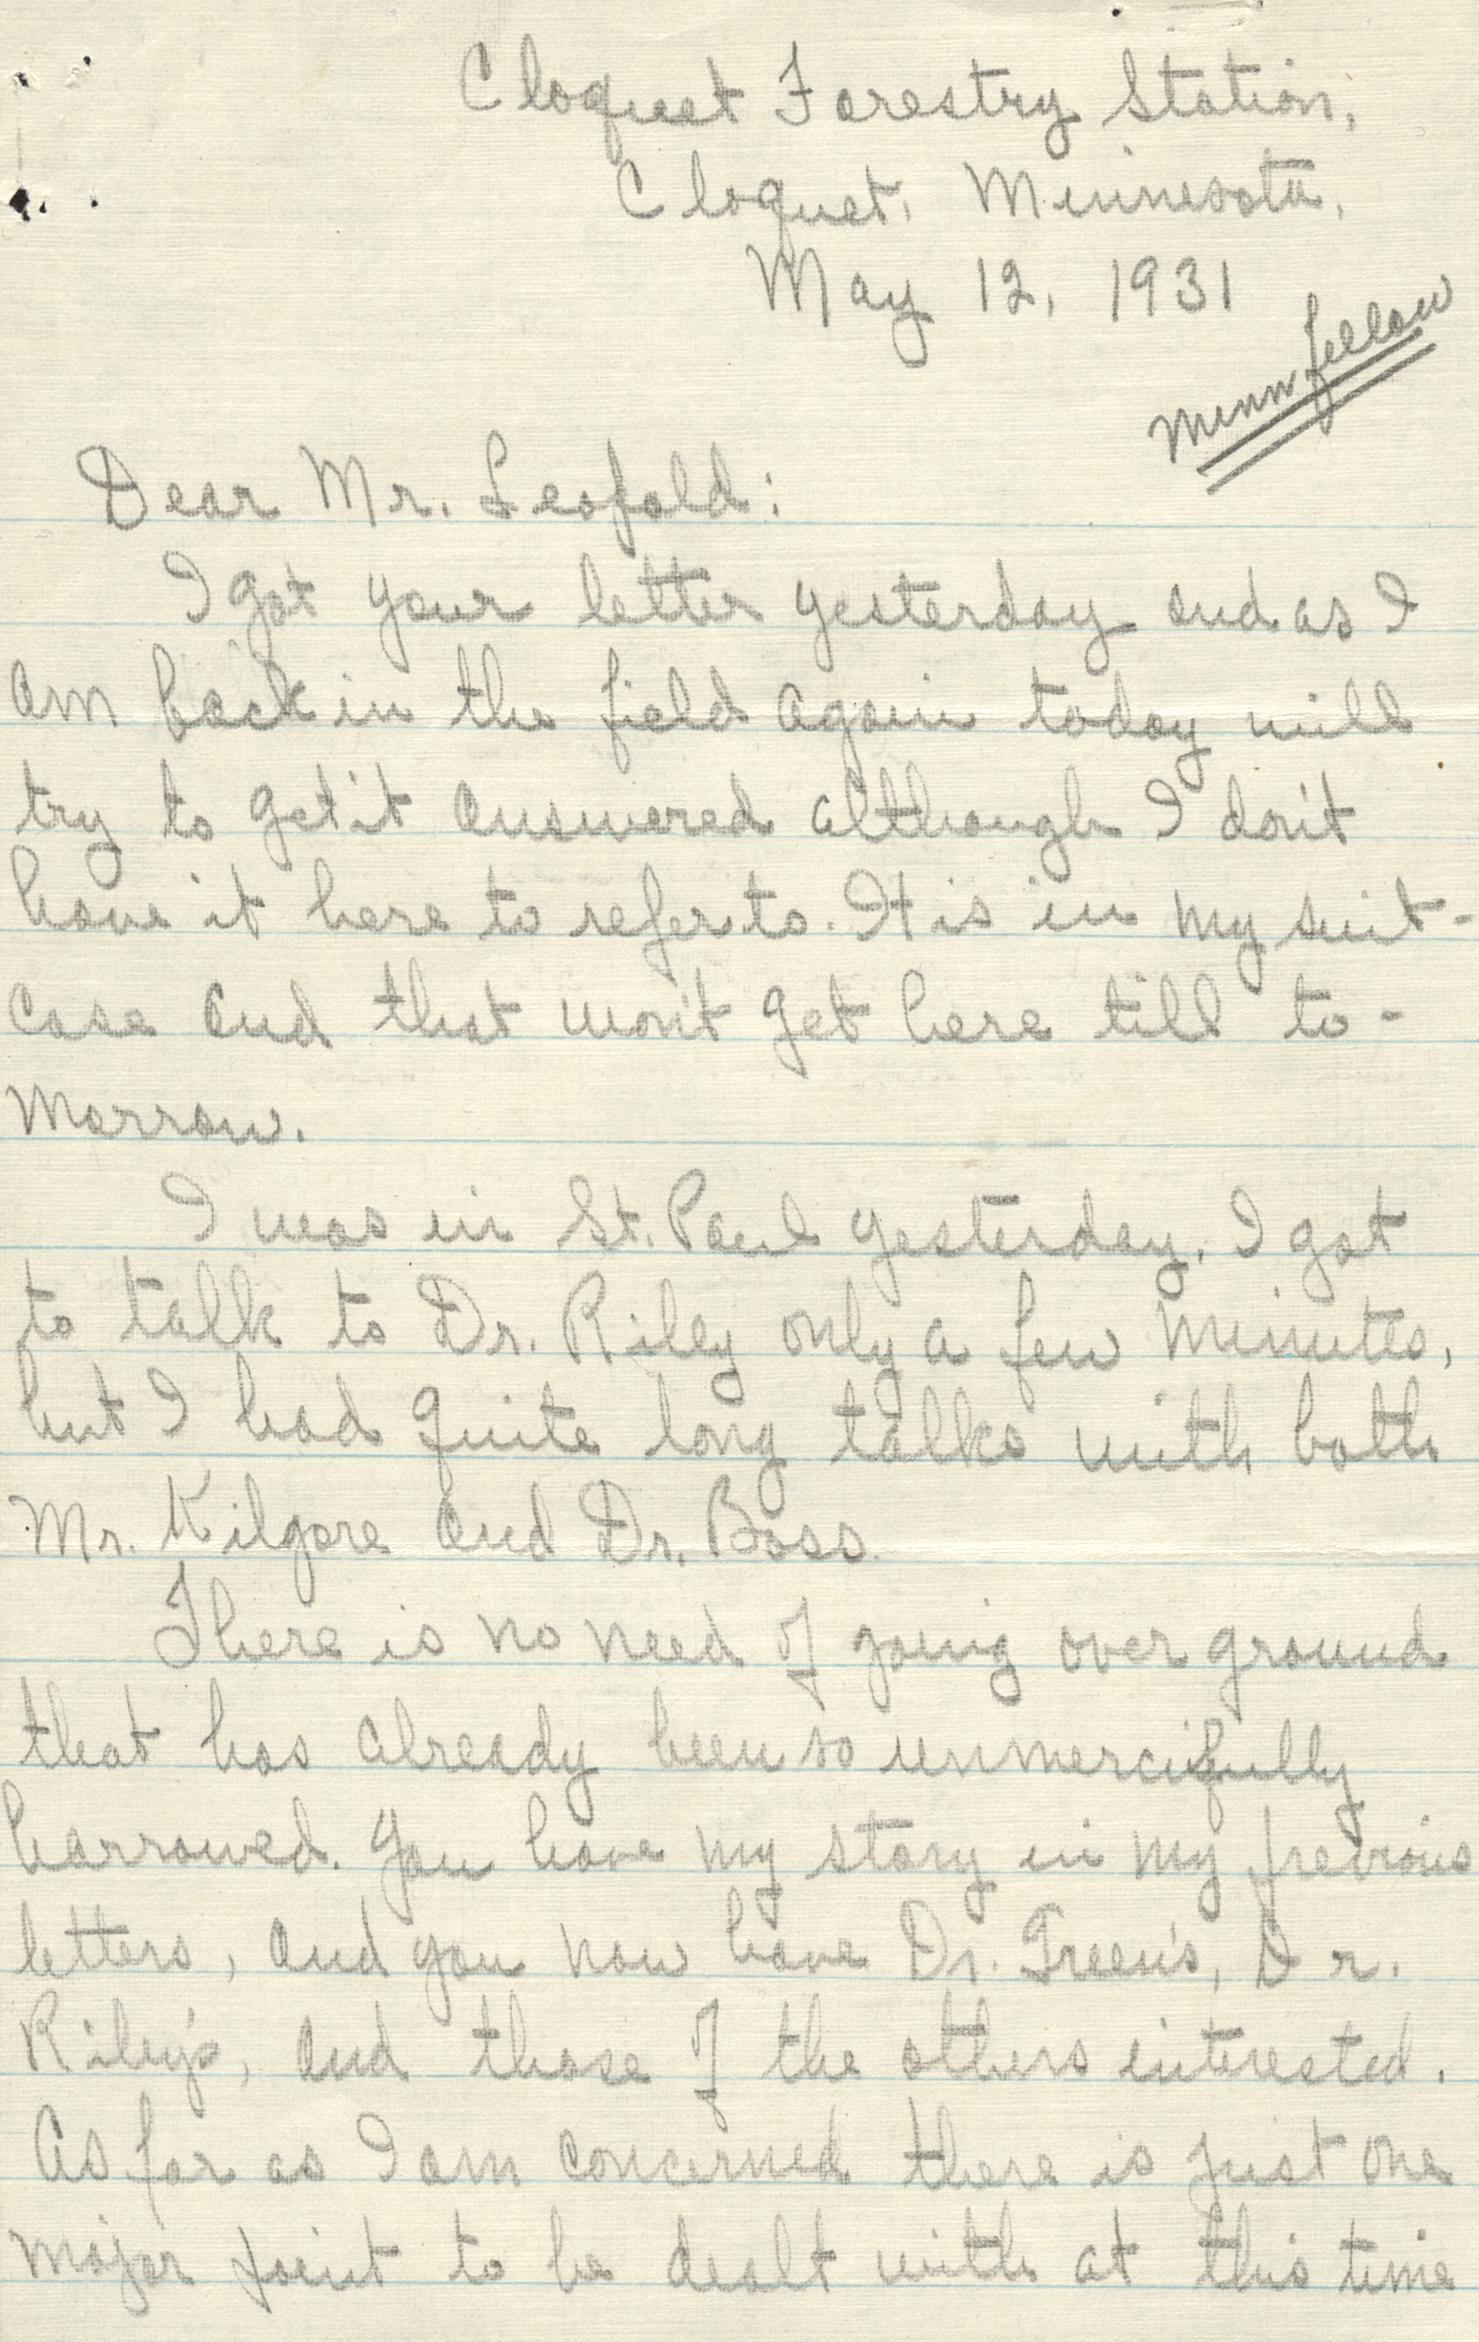 Cloquet Forestry Station,
Cloquet, Minnesota,
May 12, 1931
Minn fellow
Dear Mr. Leopold:
I got your letter yesterday and as I
am back in the field again today will
try to get it answered although I don't
have it here to refer to. It is in my suit-
case and that won't get here till to-
morrow.
I was in St. Paul yesterday. I got
to talk to Dr. Riley only a few minutes,
but I had quite long talks with both
Mr. Kilgore and Dr. Boss.
There is no need of going over ground
that has already been so unmercifully
harrowed. You have my story in my previous
letters, and you now have Dr. Green's, Dr.
Riley's, and those of the others interested.
As far as I am concerned there is just one
major point to be dealt with at this time